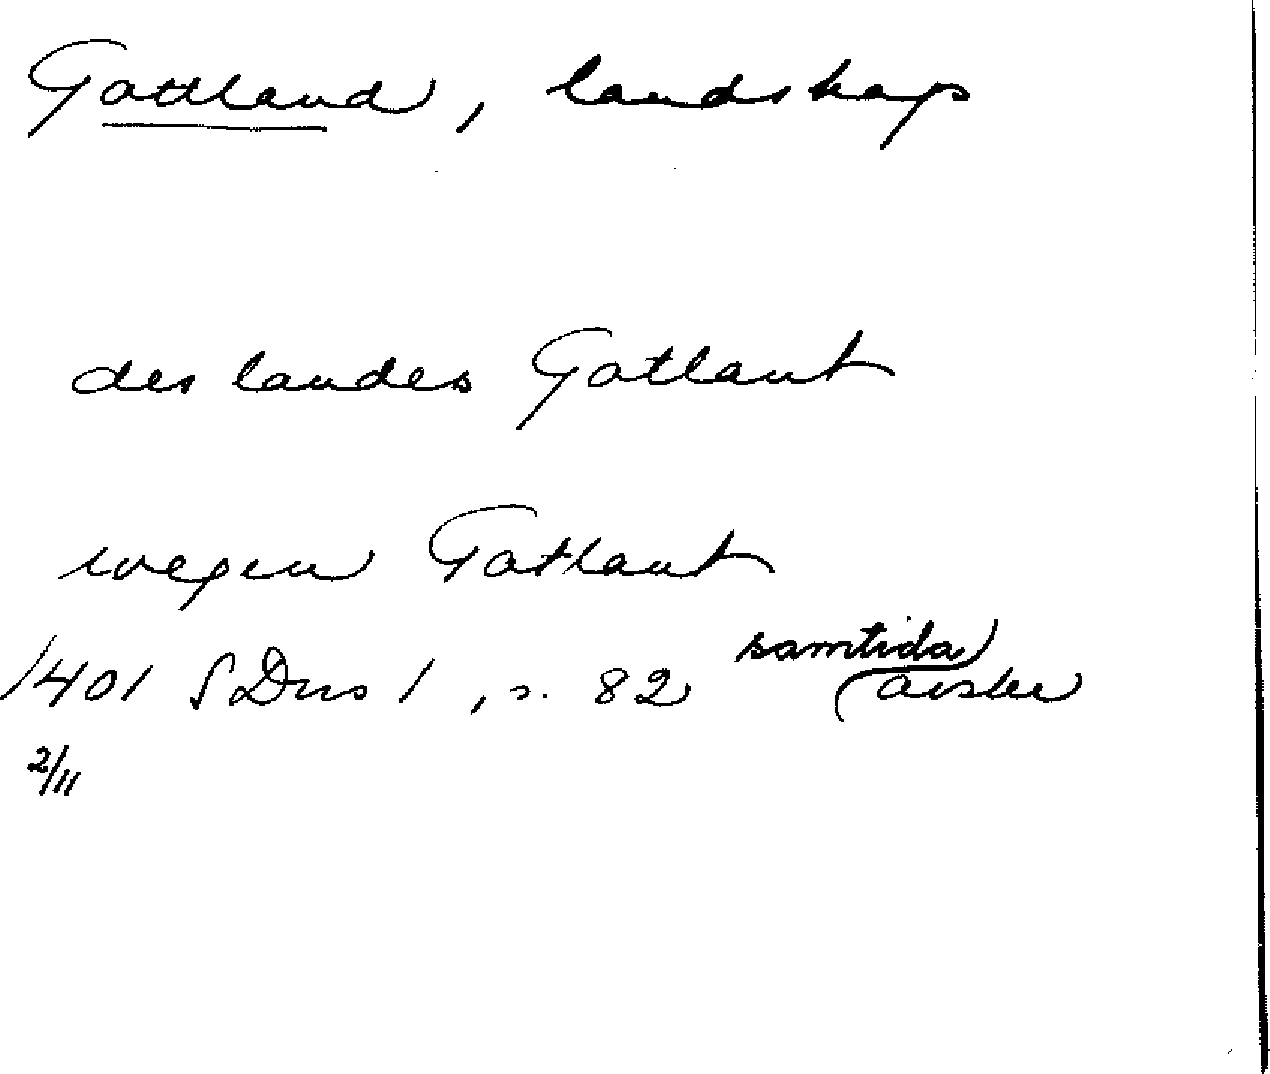 Gottland, landskap
des landes Gotlant
wegen Gotlant
samtida
1401 SDns 1, s. 82 avskr
2/11